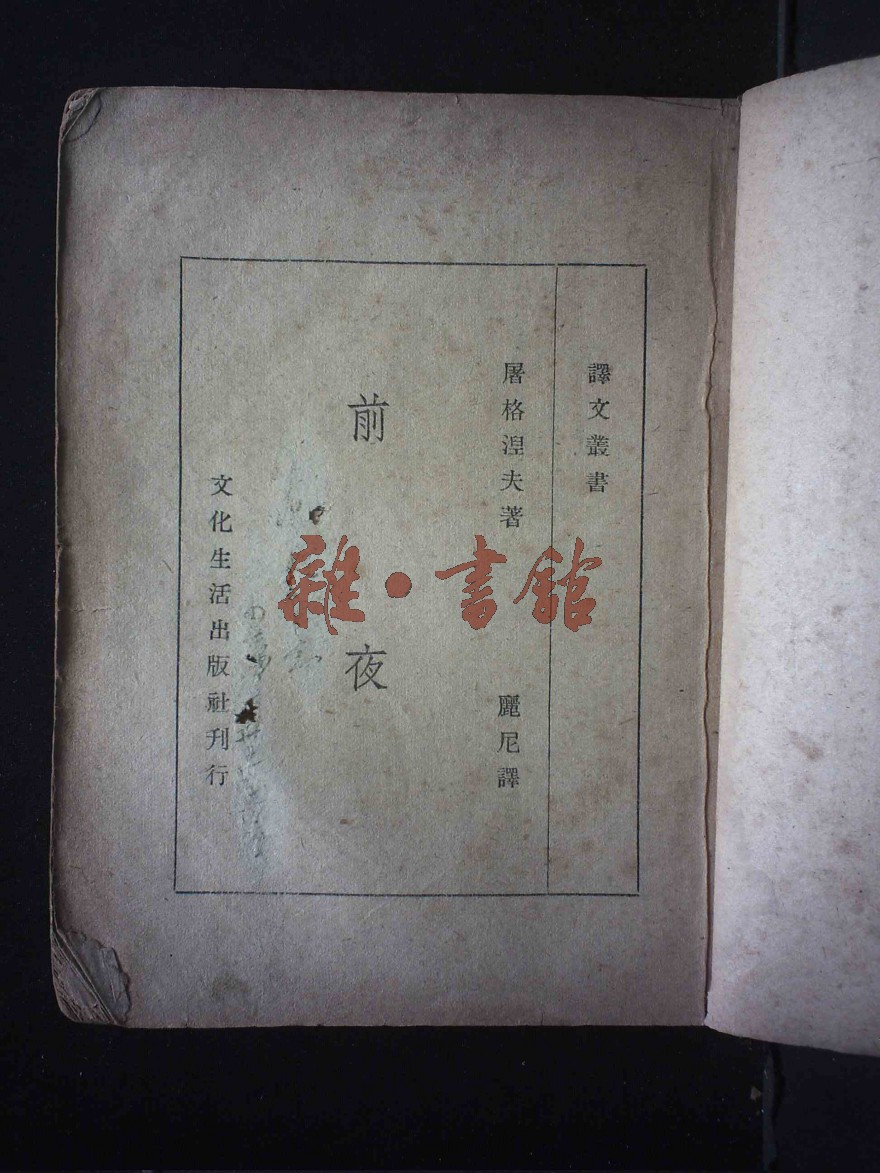 譯文叢書
屠格湼夫著
麗尼譯
前夜
文化生活出版社刊行
雜·書館